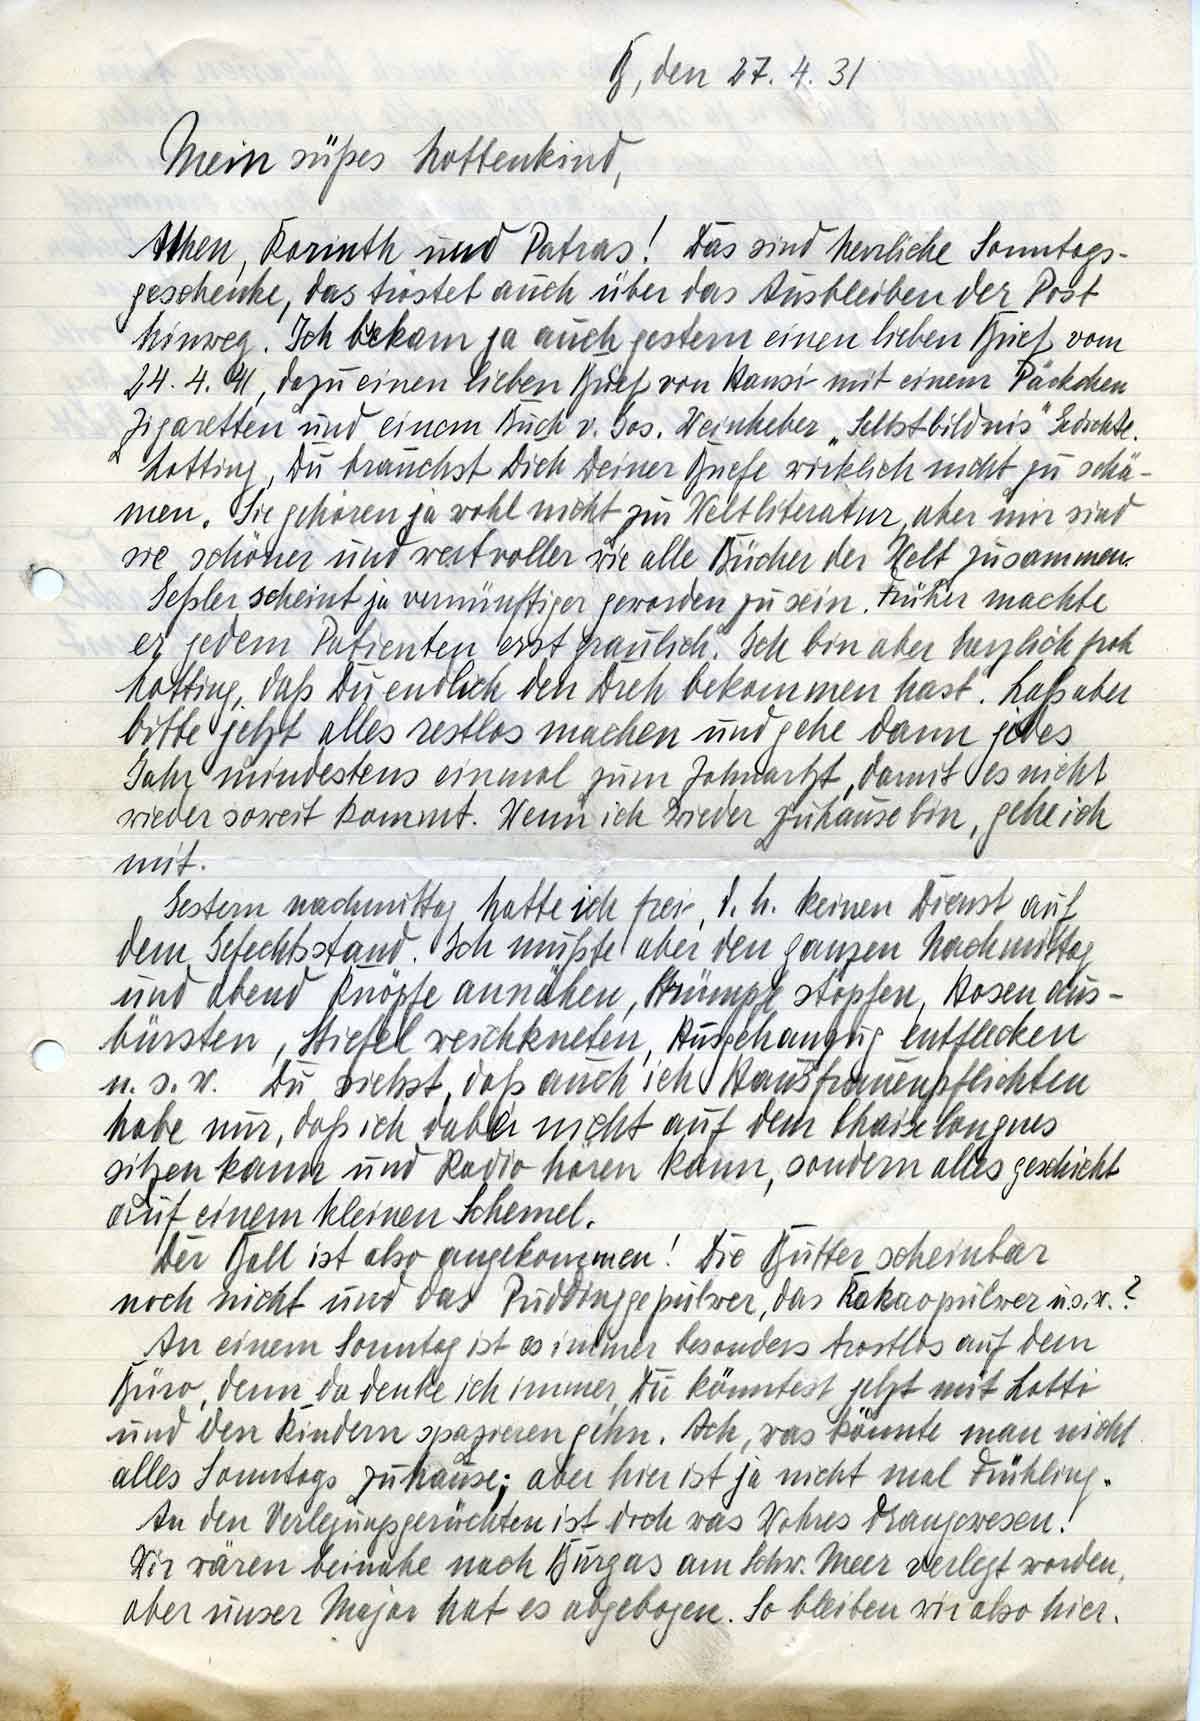 B, den 27. 4. 31
Mein süßes Lottenkind,
Athen, Korinth und Patras! Das sind herrliche Sonntags-
geschenke, das tröstet auch über das Ausbleiben der Post
hinweg. Ich bekam ja auch gestern einen lieben Brief vom
24. 4. 41, dazu einen lieben Brief von Hansi mit einem Päckchen
Zigaretten und einem Buch v. Jos. Weinheber „Selbstbildnis" Gedichte.
Lotting, Du brauchst Dich Deiner Briefe wirklich nicht zu schä-
men. Sie gehören ja wohl nicht zur Weltliteratur, aber mir sind
sie schöner und wertvoller wie alle Bücher der Welt zusammen.
Geßler scheint ja vernünftiger geworden zu sein. Früher machte
er jedem Patienten erst graulich. Ich bin aber herzlich froh
Lotting, daß Du endlich den Dreh bekommen hast. Laß aber
bitte jetzt alles restlos machen und gehe dann jedes
Jahr mindestens einmal zum Zahnartzt, damit es nicht
wieder soweit kommt. Wenn ich wieder zuhause bin, gehe ich
mit.
Gestern nachmittag hatte ich frei, d. h. keinen Dienst auf
dem Gefechtsstand. Ich mußte aber den ganzen Nachmittag
und abend Knöpfe annähen, Strümpfe stopfen, Hosen aus-
bürsten, Stiefel weichkneten, Ausgehanzug entflecken
u. s. w. Du siehst, daß auch ich Hausfrauenpflichten
habe nur, daß ich dabei nicht auf dem Chaiselongues
sitzen kann und Radio hören kann, sondern alles geschieht
auf einem kleinen Schemel.
Der Ball ist also angekommen! Die Butter scheinbar
noch nicht und das Puddinggepulver, das Kakaopulver u.s.w.?
An einem Sonntag ist es immer besonders trostlos auf dem
Büro, denn da denke ich immer, Du könntest jetzt mit Lotti
und den Kindern spazieren gehn. Ach, was könnte man nicht
alles Sonntags zuhause; aber hier ist ja nicht mal Frühling.
An den Verlegungsgerüchten ist doch was Wahres drangewesen!
Wir wären beinahe nach Burgas am Schw. Meer verlegt worden,
aber unser Major hat es abgebogen. So bleiben wir also hier.